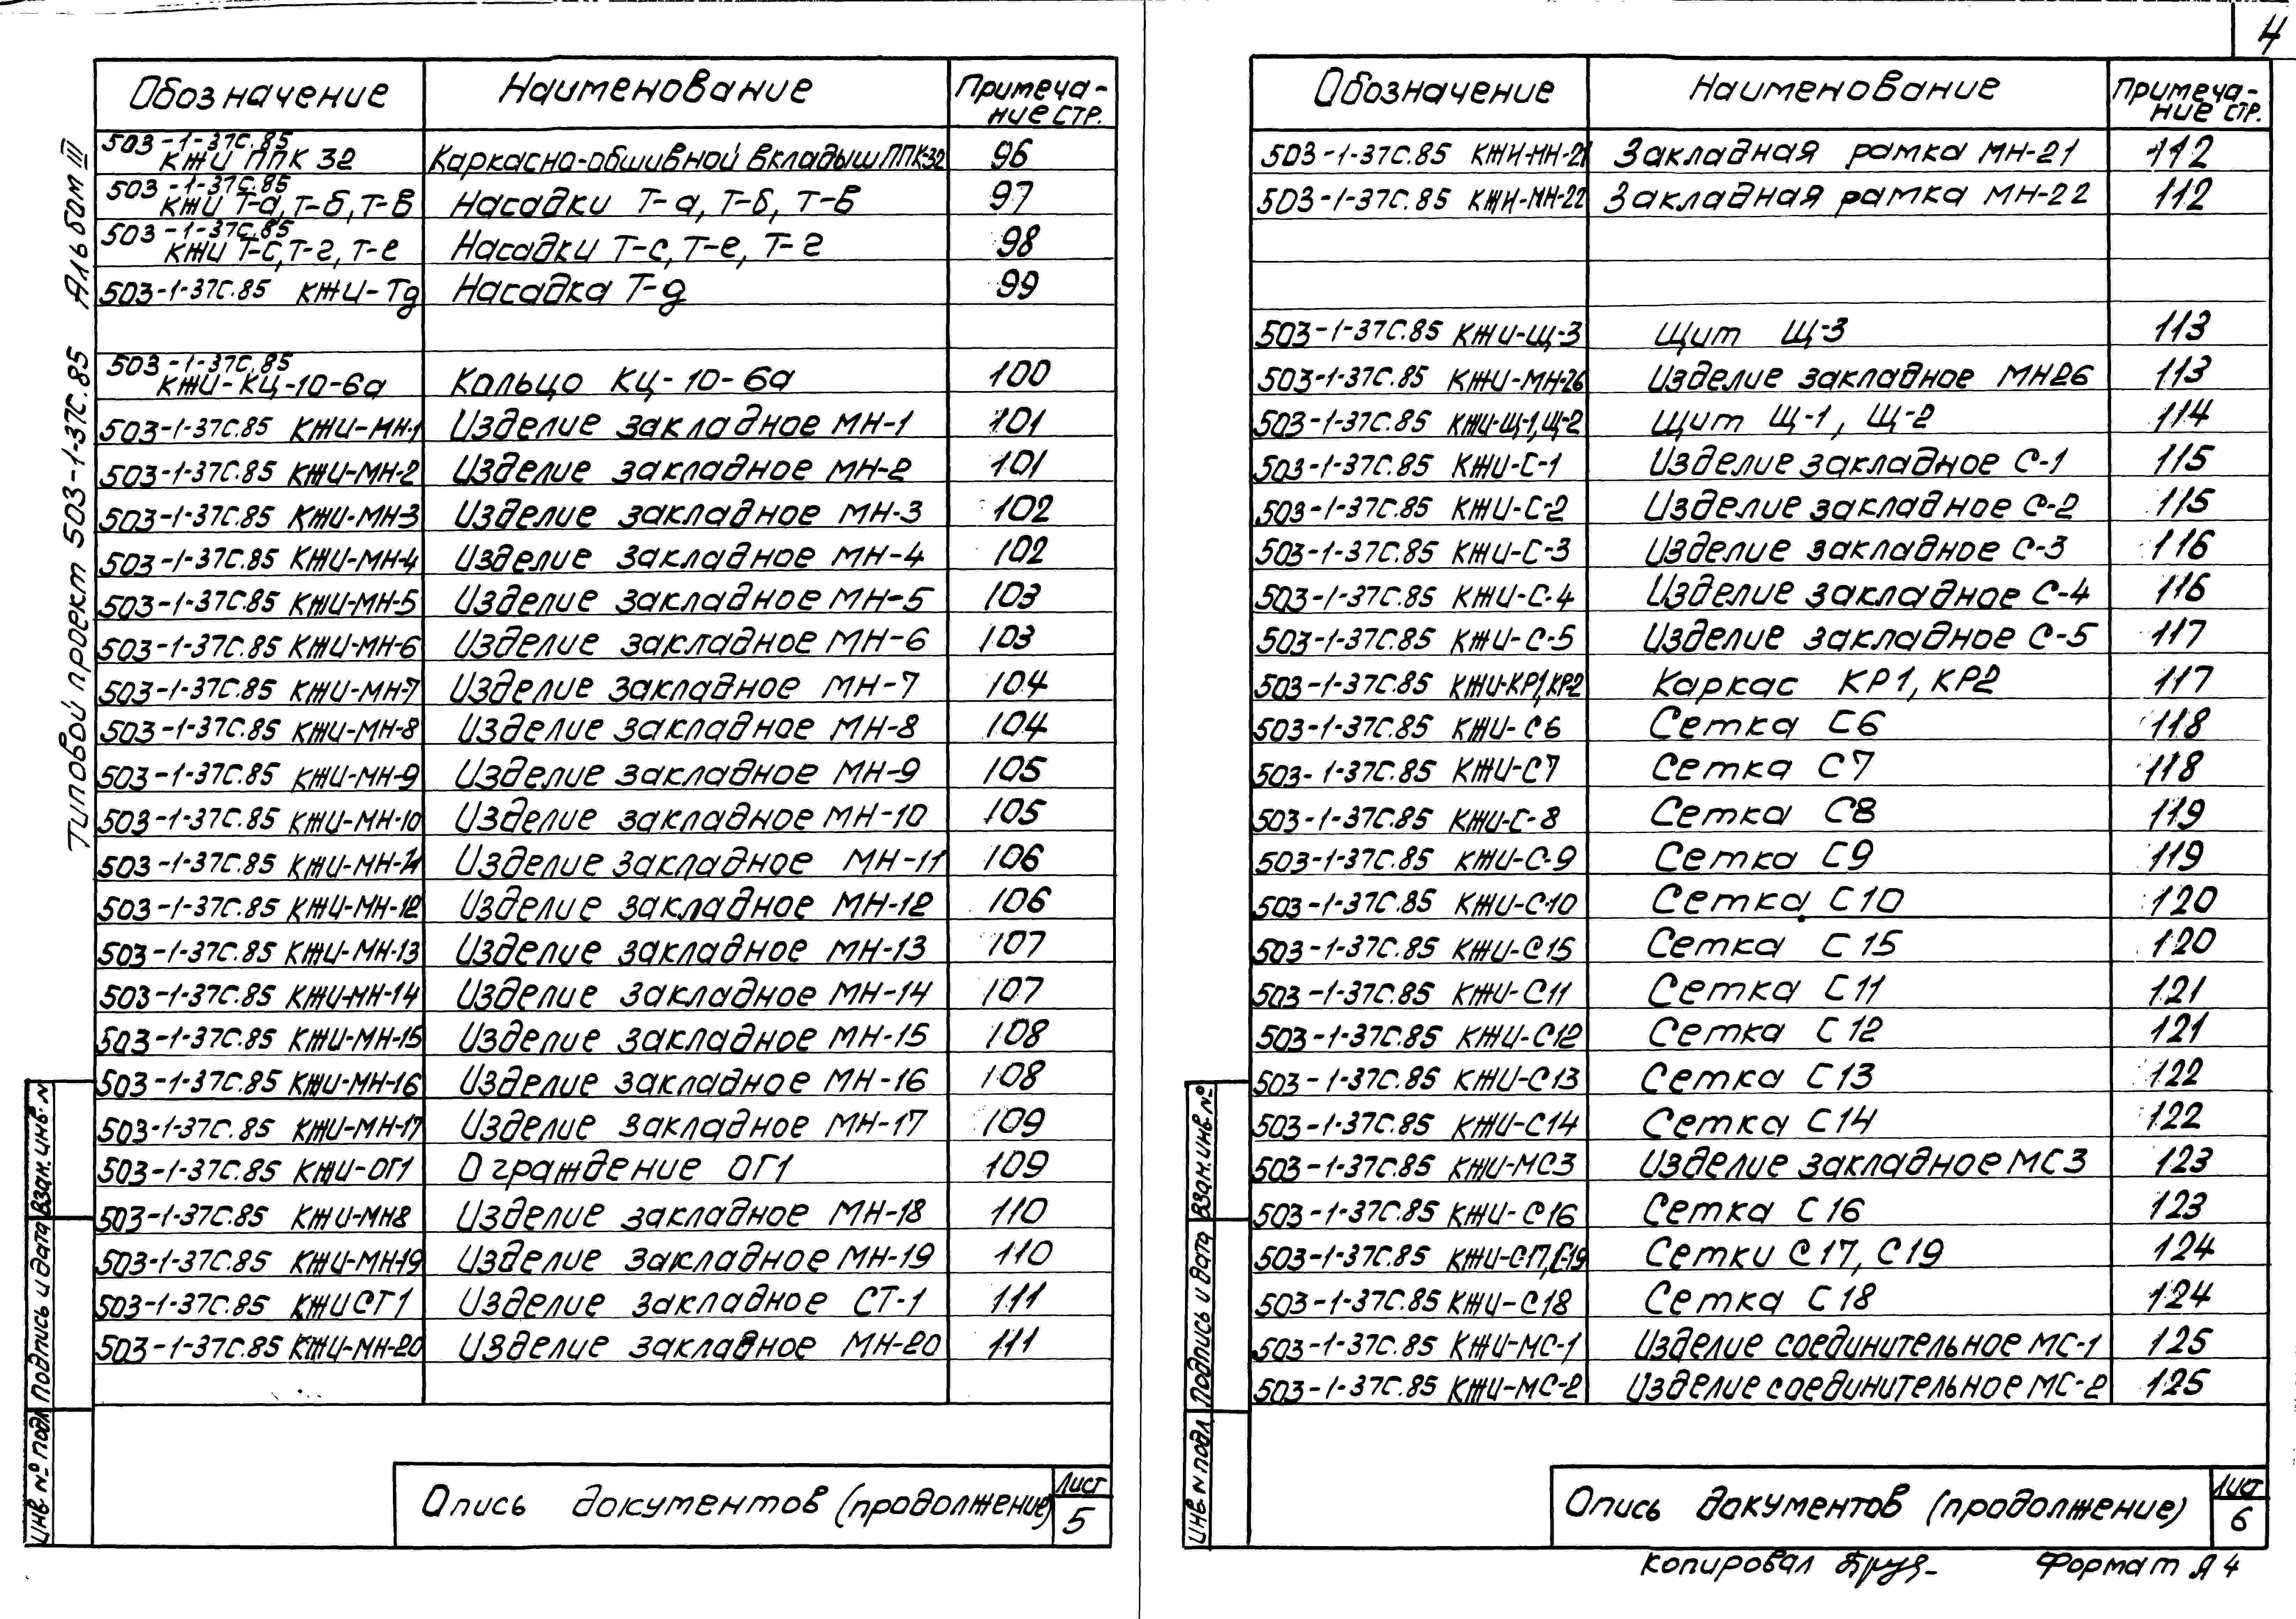 4
Типовой проект 503-1-37С.85 Альбом III
Обозначение Наименование Примеча-
ние стр.
503-1-37С.85
КЖИ ППК 32 Каркасно-обшивной вкладыш ППК-32 96
503-1-37С.85
КЖИ Т-а, Т-б, Т-в Насадки Т-а, Т-б, Т-в 97
503-1-37С.85
КЖИ Т-с, Т-г, Т-е Насадки Т-с, Т-е, Т-г 98
503-1-37С.85 КЖИ-Тд Насадка Т-д 99
503-1-37С.85
КЖИ-КЦ-10-6а Кольцо КЦ-10-6а 100
503-1-37С.85 КЖИ-МН-1 Изделие закладное МН-1 101
503-1-37С.85 КЖИ-МН-2 Изделие закладное МН-2 101
503-1-37С.85 КЖИ-МН-3 Изделие закладное МН-3 102
503-1-37С.85 КЖИ-МН-4 Изделие закладное МН-4 102
503-1-37С.85 КЖИ-МН-5 Изделие закладное МН-5 103
503-1-37С.85 КЖИ-МН-6 Изделие закладное МН-6 103
503-1-37С.85 КЖИ-МН-7 Изделие закладное МН-7 104
503-1-37С.85 КЖИ-МН-8 Изделие закладное МН-8 104
503-1-37С.85 КЖИ-МН-9 Изделие закладное МН-9 105
503-1-37С.85 КЖИ-МН-10 Изделие закладное МН-10 105
503-1-37С.85 КЖИ-МН-11 Изделие закладное МН-11 106
503-1-37С.85 КЖИ-МН-12 Изделие закладное МН-12 106
503-1-37С.85 КЖИ-МН-13 Изделие закладное МН-13 107
503-1-37С.85 КЖИ-МН-14 Изделие закладное МН-14 107
503-1-37С.85 КЖИ-МН-15 Изделие закладное МН-15 108
503-1-37С.85 КЖИ-МН-16 Изделие закладное МН-16 108
503-1-37С.85 КЖИ-МН-17 Изделие закладное МН-17 109
503-1-37С.85 КЖИ-ОГ1 Ограждение ОГ1 109
503-1-37С.85 КЖИ-МН8 Изделие закладное МН-18 110
503-1-37С.85 КЖИ-МН-19 Изделие закладное МН-19 110
503-1-37С.85 КЖИ СТ1 Изделие закладное СТ-1 111
503-1-37С.85 КЖИ-МН-20 Изделие закладное МН-20 111
Взам.инв.N
Подпись и дата
Инв № подл
Опись документов (продолжение) Лист
5
Обозначение Наименование Примеча-
ние стр.
503-1-37С.85 КЖИ-МН-21 Закладная рамка МН-21 112
503-1-37С.85 КЖИ-МН-22 Закладная рамка МН-22 112
503-1-37С.85 КЖИ-Щ-3 Щит Щ-3 113
503-1-37С.85 КЖИ-МН-26 Изделие закладное МН26 113
503-1-37С.85 КЖИ-Щ-1,Щ-2 Щит Щ-1, Щ-2 114
503-1-37С.85 КЖИ-С-1 Изделие закладное С-1 115
503-1-37С.85 КЖИ-С-2 Изделие закладное С-2 115
503-1-37С.85 КЖИ-С-3 Изделие закладное С-3 116
503-1-37С.85 КЖИ-С-4 Изделие закладное С-4 116
503-1-37С.85 КЖИ-С-5 Изделие закладное С-5 117
503-1-37С.85 КЖИ-КР1,КР2 Каркас КР1, КР2 117
503-1-37С.85 КЖИ-С6 Сетка С6 118
503-1-37С.85 КЖИ-С7 Сетка С7 118
503-1-37С.85 КЖИ-С-8 Сетка С8 119
503-1-37С.85 КЖИ-С-9 Сетка С9 119
503-1-37С.85 КЖИ-С-10 Сетка С10 120
503-1-37С.85 КЖИ-С15 Сетка С15 120
503-1-37С.85 КЖИ-С11 Сетка С11 121
503-1-37С.85 КЖИ-С12 Сетка С12 121
503-1-37С.85 КЖИ-С13 Сетка С13 122
503-1-37С.85 КЖИ-С14 Сетка С14 122
503-1-37С.85 КЖИ-МС3 Изделие закладное МС3 123
503-1-37С.85 КЖИ-С16 Сетка С16 123
503-1-37С.85 КЖИ-С-17,С-19 Сетки С17, С19 124
503-1-37С.85 КЖИ-С18 Сетка С18 124
503-1-37С.85 КЖИ-МС-1 Изделие соединительное МС-1 125
503-1-37С.85 КЖИ-МС-2 Изделие соединительное МС-2 125
Взам.инв.№
Подпись и дата
Инв N подл
Опись документов (продолжение) Лист
6
Копировал Формат А4